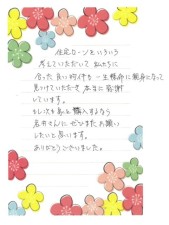 住宅ローンをいろいろ
考していただいて 私たちに
合った良い物件を 一生懸命に親身になって
見つけていただき 本当に感謝
しています。
もし次も私も購入するなら
岩井さんに ぜひまた お願い
したいと思います。
ありがとうございました。